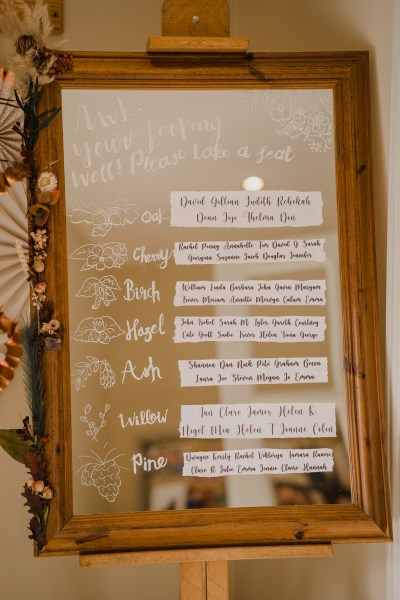 Awh!
you're looking
Well! Please take a seat
Oak
David Gillian Judith Rebekah
Dean Jojo Thelma Den
Cherry
Rachel Penny Annabelle Tom David G Sarah
Georgina Suzanne Jacob Douglas Jennifer
Birch
William Linda Barbara John Gavin Margam
Trevor Miriam Annette Moniya Callum Emma
Hazel
John Isobel Sarah M Tyler Gareth Courtney
Cate Geoff Sadie Trevor Helen Fiona George
Ash
Shannon Dan Nick Pete Graham Becca
Laura Jon Steven Megan Jo Emma
Willow
Ian Clare James Helen K
Nigel Mia Helen T Joanne Colin
Pine
Dwayne Kirsty Rachel Viktoriya Tamara
Clare R Julie Emma Jennie Claire Hannah